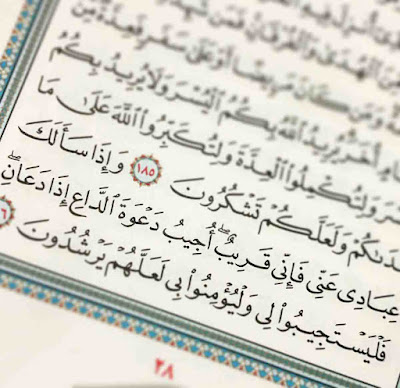 أُنزِلَ فِيهِ
ٱلۡهُدَىٰ وَٱلۡفُرۡقَانِۚ فَمَن شَهِدَ
وَمَن كَانَ مَرِيضًا أَوۡ عَلَىٰ سَفَرٖ فَعِدَّةٞ مِّنۡ
أُخَرَۗ يُرِيدُ ٱللَّهُ بِكُمُ ٱلۡيُسۡرَ وَلَا يُرِيدُ بِكُمُ
وَلِتُكۡمِلُواْ ٱلۡعِدَّةَ وَلِتُكَبِّرُواْ ٱللَّهَ عَلَىٰ مَا
هَدَىٰكُمۡ وَلَعَلَّكُمۡ تَشۡكُرُونَ ١٨٥ وَإِذَا سَأَلَكَ
عِبَادِي عَنِّي فَإِنِّي قَرِيبٌۖ أُجِيبُ دَعۡوَةَ ٱلدَّاعِ إِذَا دَعَانِۖ
فَلۡيَسۡتَجِيبُواْ لِي وَلۡيُؤۡمِنُواْ بِي لَعَلَّهُمۡ يَرۡشُدُونَ
٢٨